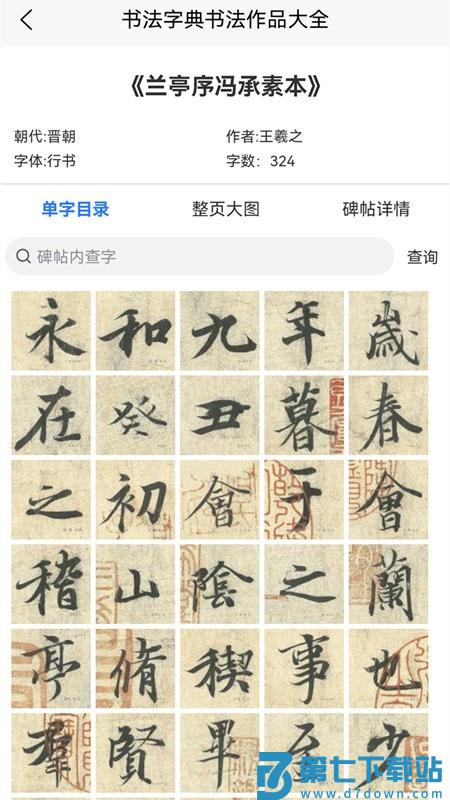 书法字典书法作品大全
《兰亭序冯承素本》
朝代:晋朝 作者:王羲之
字体:行书 字数：324
单字目录 整页大图 碑帖详情
碑帖内查字 查询
永和九年歲
在癸丑暮春
之初會于會
稽山陰之蘭
亭脩稧事也
羣賢畢至少
第七下载站
www.d7down.com